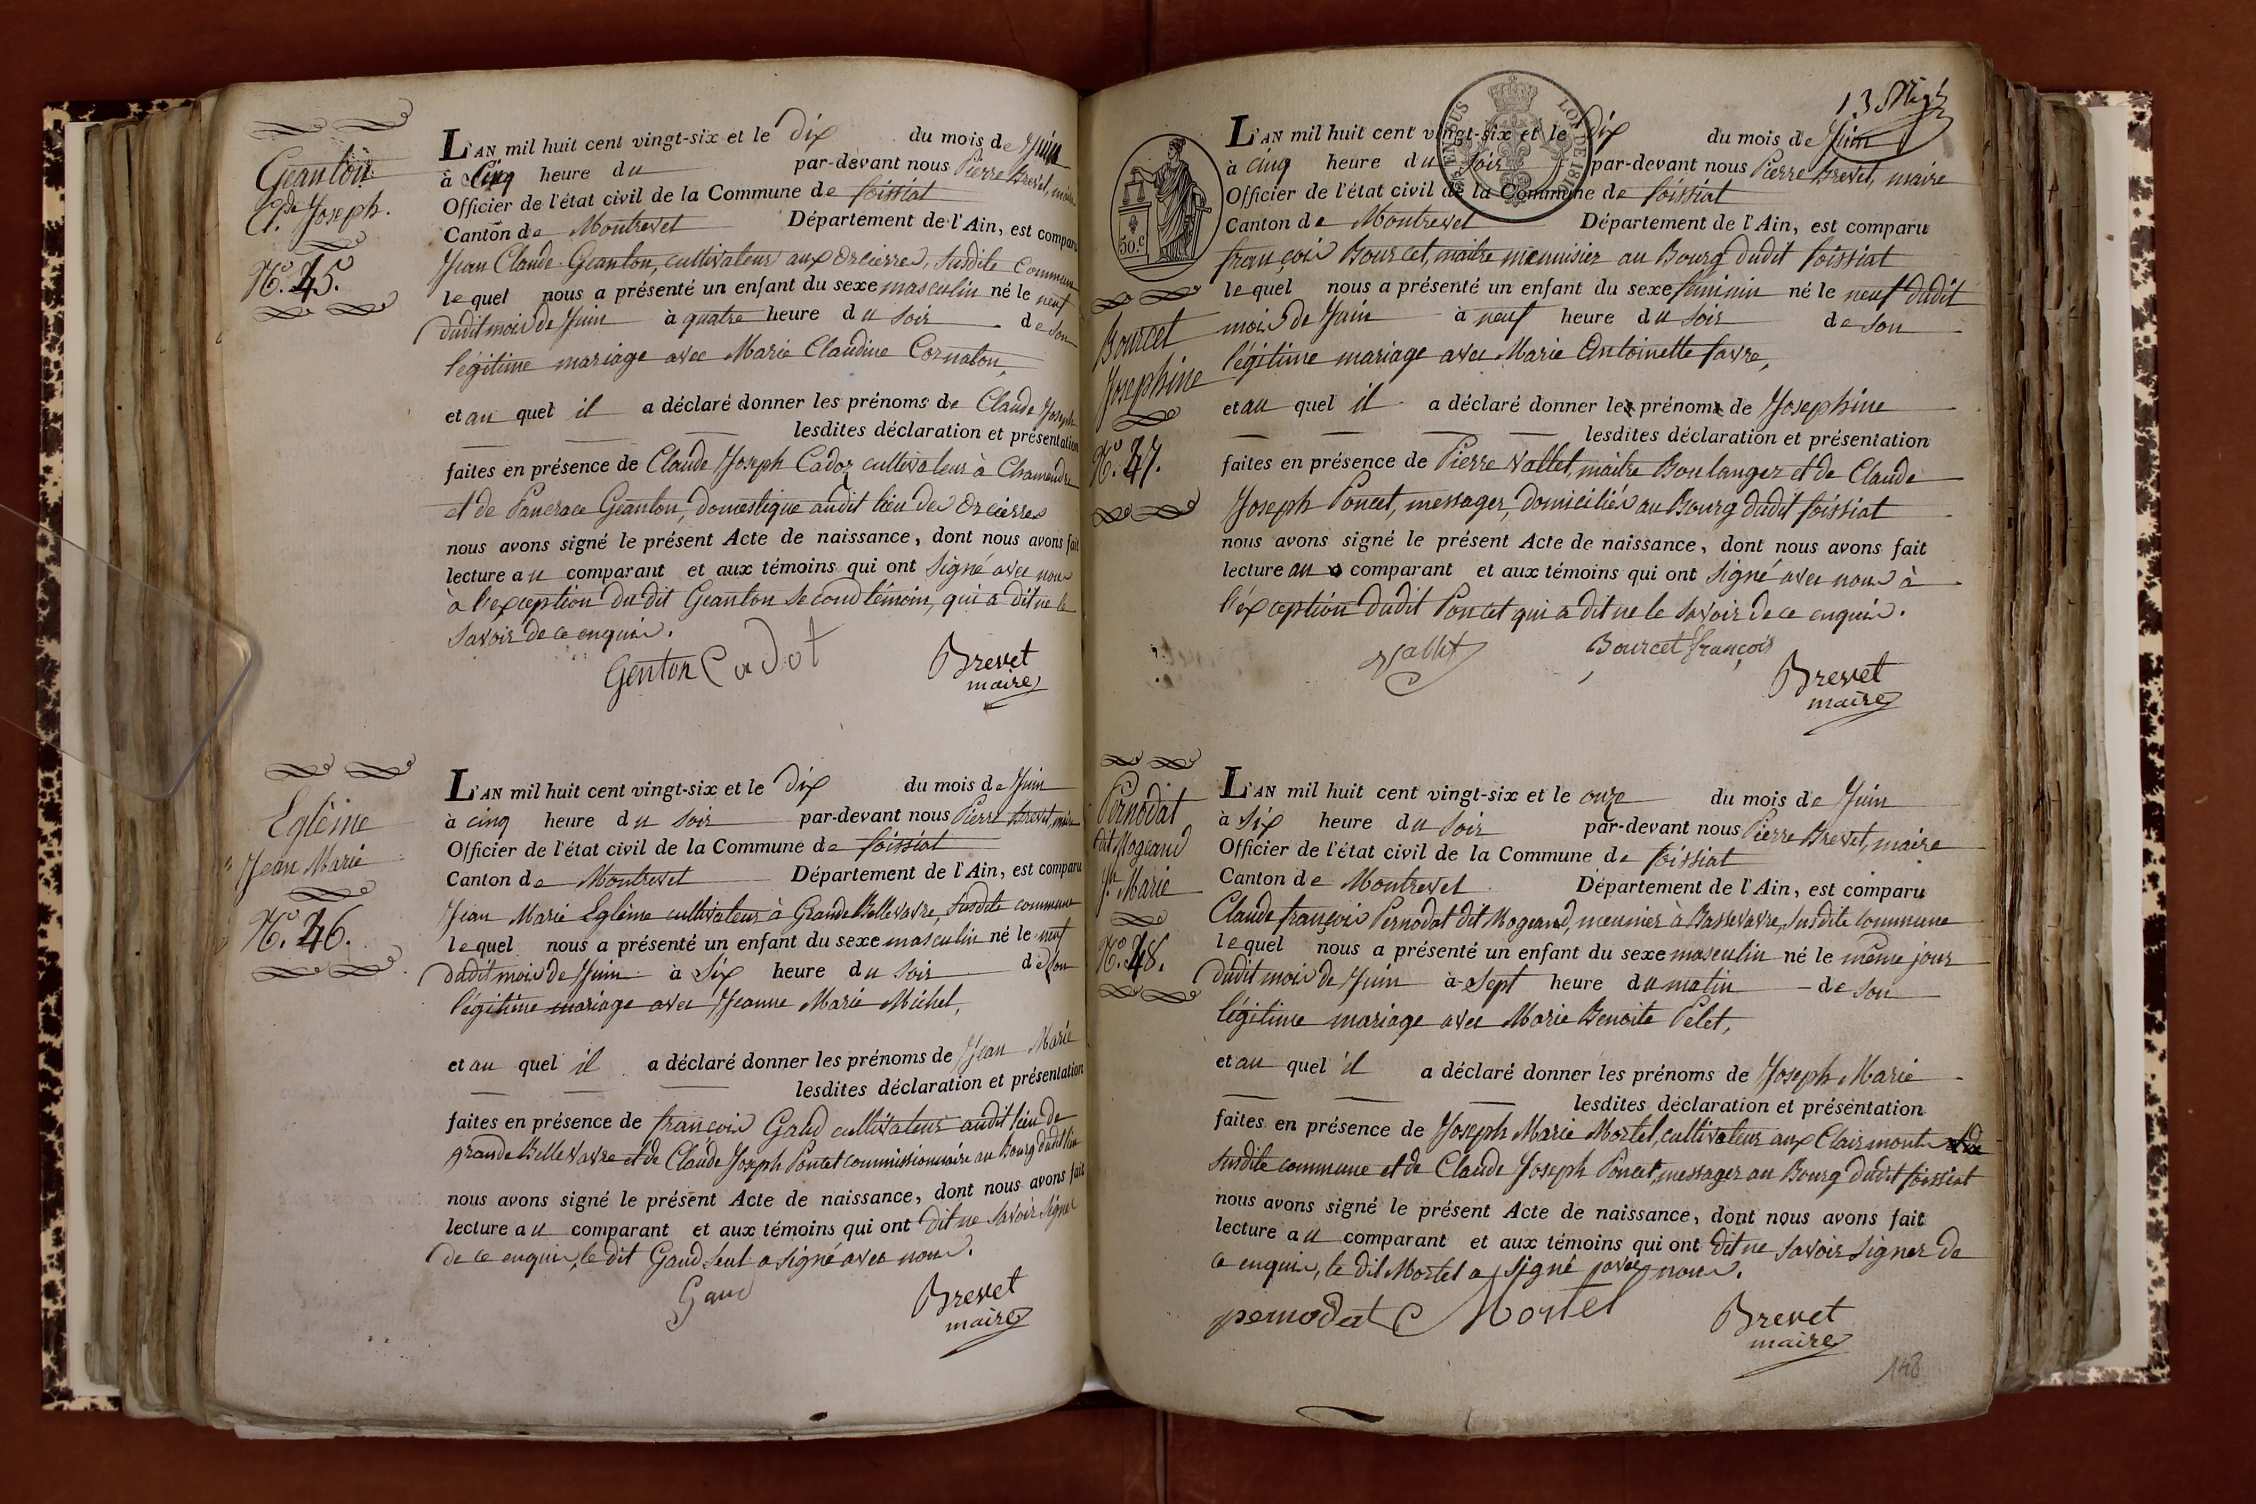 Geanton
Cl.de Joseph.
N.o 45.
L'AN mil huit cent vingt-six et le Dix du mois de Juin
à Cinq heure du par-devant nous Pierre Brevet, maire
Officier de l'état civil de la Commune de foissiat
Canton de Montrevel Département de l'Ain, est comparu
Jean Claude Geanton, cultivateur aux Orcierres, Susdite Commune
lequel nous a présenté un enfant du sexe masculin né le neuf
dudit mois de Juin à quatre heure du soir de son
légitime mariage avec Marie Claudine Cornaton,
et au quel il a déclaré donner les prénoms de Claude Joseph
lesdites déclaration et présentation
faites en présence de Claude Joseph Cadoz cultivateur à Chamandre
et de Pancrace Geanton, domestique audit lieu des Orcierres
nous avons signé le présent Acte de naissance, dont nous avons fait
lecture au comparant et aux témoins qui ont signé avec nous
à l'exception du dit Geanton second témoin, qui a dit ne le
savoir de ce enquis.
Genton Cadot Brevet
maire
Eglème
Jean Marie
N.o 46.
L'AN mil huit cent vingt-six et le Dix du mois de Juin
à cinq heure du soir par-devant nous Pierre Brevet, maire
Officier de l'état civil de la Commune de foissiat
Canton de Montrevel Département de l'Ain, est comparu
Jean Marie Eglème cultivateur à Grande Bellevavre, Susdite commune
lequel nous a présenté un enfant du sexe masculin né le neuf
dudit mois de Juin à Six heure du soir de son
légitime mariage avec Jeanne Marie Michel,
et au quel il a déclaré donner les prénoms de Jean Marie
lesdites déclaration et présentation
faites en présence de françois Gaud cultivateur audit lieu de
grande Bellevavre et de Claude Joseph Poncet commissionnaire au Bourg dudit lieu
nous avons signé le présent Acte de naissance, dont nous avons fait
lecture au comparant et aux témoins qui ont dit ne savoir signer
de ce enquis, le dit Gaud seul a signé avec nous.
Gaud Brevet
maire
13
50.c
EN SUS
LOI DE 1816
Bourcet
Josephine
N.o 47.
L'AN mil huit cent vingt-six et le Dix du mois de Juin
à cinq heure du soir par-devant nous Pierre Brevet, maire
Officier de l'état civil de la Commune de foissiat
Canton de Montrevel Département de l'Ain, est comparu
françois Bourcet, maitre menuisier au Bourg dudit foissiat
lequel nous a présenté un enfant du sexe féminin né le neuf dudit
mois de Juin à neuf heure du soir de son
légitime mariage avec Marie Antoinette favre,
et au quel il a déclaré donner les prénoms de Josephine
lesdites déclaration et présentation
faites en présence de Pierre Vallet, maitre Boulanger et de Claude
Joseph Poncet, messager, domiciliés au Bourg dudit foissiat
nous avons signé le présent Acte de naissance, dont nous avons fait
lecture au comparant et aux témoins qui ont signé avec nous à
l'éxception dudit Poncet qui a dit ne le savoir de ce enquis.
Vallet Bourcet françois Brevet
maire
Pernodat
dit Mogeand
J.h Marie
N.o 48.
L'AN mil huit cent vingt-six et le onze du mois de Juin
à six heure du soir par-devant nous Pierre Brevet, maire
Officier de l'état civil de la Commune de foissiat
Canton de Montrevel Département de l'Ain, est comparu
Claude françois Pernodat dit Mogeand, meunier à Bassevavre, Susdite Commune
lequel nous a présenté un enfant du sexe masculin né le même jour
dudit mois de Juin à sept heure du matin de son
légitime mariage avec Marie Benoite Pelet,
et au quel il a déclaré donner les prénoms de Joseph Marie
lesdites déclaration et présentation
faites en présence de Joseph Marie Mortel, cultivateur aux Clairmonts
susdite commune et de Claude Joseph Poncet, messager au Bourg dudit foissiat
nous avons signé le présent Acte de naissance, dont nous avons fait
lecture au comparant et aux témoins qui ont dit ne savoir signer de
ce enquis, le dit Mortel a signé avec nous.
pernodat C Mortel Brevet
maire
148